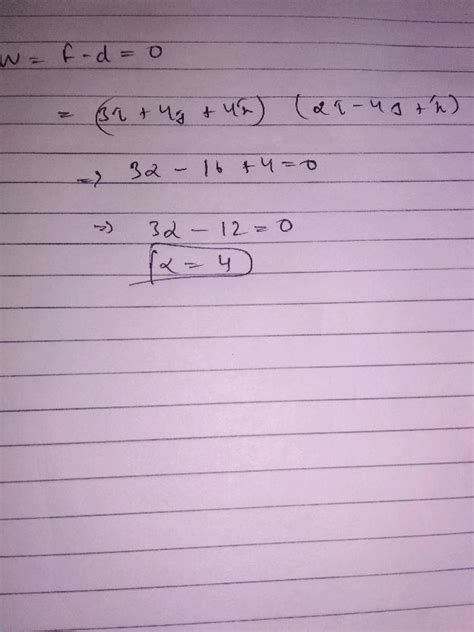 W = f - d = 0
= (3î + 4ĵ + 4k̂) (αî - 4ĵ + k̂)
=> 3α - 16 + 4 = 0
=> 3α - 12 = 0
α = 4